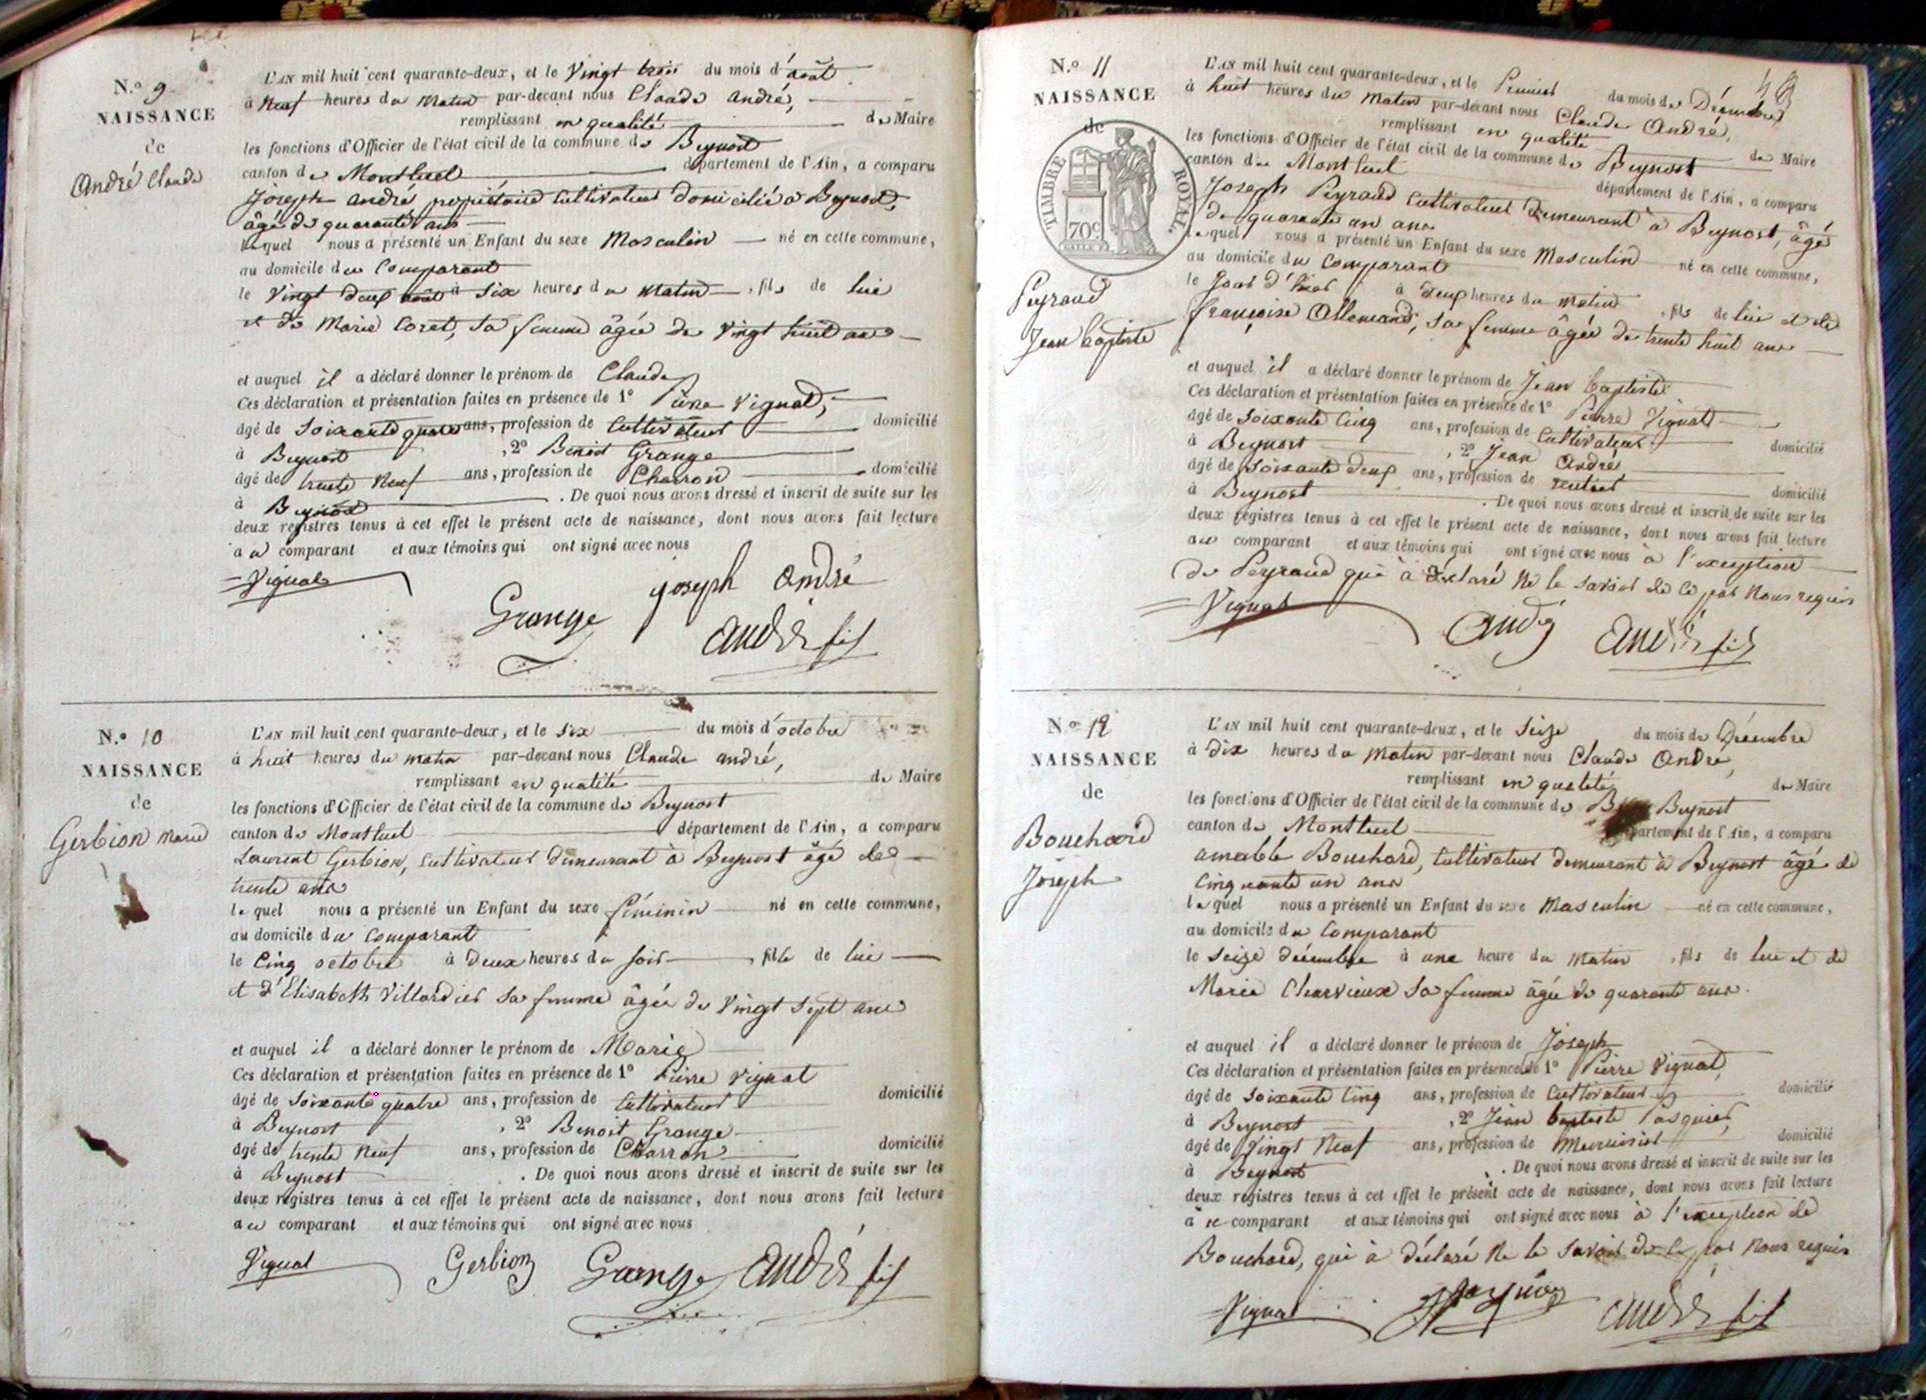 N.º 9
NAISSANCE
de
André Claude
L'AN mil huit cent quarante-deux, et le Vingt trois du mois d'août
à Neuf heures du Matin par-devant nous Claude André,
remplissant en qualité de Maire
les fonctions d'Officier de l'état civil de la commune de Beynost
canton de Montluel département de l'Ain, a comparu
Joseph André propriétaire Cultivateur domicilié à Beynost,
âgé de quarante ans
lequel nous a présenté un Enfant du sexe Masculin né en cette commune,
au domicile du Comparant
le Vingt deux août à Six heures du Matin, fils de lui
et de Marie Coret, sa femme âgée de Vingt huit ans
et auquel il a déclaré donner le prénom de Claude
Ces déclaration et présentation faites en présence de 1º Pierre Vignat,
âgé de Soixante quatre ans, profession de Cultivateur domicilié
à Beynost, 2º Benoit Grange
âgé de trente Neuf ans, profession de Charron domicilié
à Beynost. De quoi nous avons dressé et inscrit de suite sur les
deux registres tenus à cet effet le présent acte de naissance, dont nous avons fait lecture
au comparant et aux témoins qui ont signé avec nous
Vignat
Grange joseph andré
andré fils
N.º 10
NAISSANCE
de
Gerbion Marie
L'AN mil huit cent quarante-deux, et le Six du mois d'octobre
à huit heures du matin par-devant nous Claude andré,
remplissant en qualité de Maire
les fonctions d'Officier de l'état civil de la commune de Beynost
canton de Montluel département de l'Ain, a comparu
Laurent Gerbion, Cultivateur demeurant à Beynost âgé de
trente ans
lequel nous a présenté un Enfant du sexe féminin né en cette commune,
au domicile du Comparant
le Cinq octobre à Deux heures du soir, fille de lui
et d'Elisabeth Villardier sa femme âgée de Vingt sept ans
et auquel il a déclaré donner le prénom de Marie
Ces déclaration et présentation faites en présence de 1º Pierre Vignat
âgé de Soixante quatre ans, profession de Cultivateur domicilié
à Beynost, 2º Benoit Grange
âgé de trente Neuf ans, profession de Charron domicilié
à Beynost. De quoi nous avons dressé et inscrit de suite sur les
deux registres tenus à cet effet le présent acte de naissance, dont nous avons fait lecture
au comparant et aux témoins qui ont signé avec nous
Vignat Gerbion Grange andré fils
N.º 11
NAISSANCE
de
TIMBRE ROYAL
70c
Peyraud
Jean Baptiste
L'AN mil huit cent quarante-deux, et le Premier du mois de Décembre
à huit heures du Matin par-devant nous Claude André,
remplissant en qualité de Maire
les fonctions d'Officier de l'état civil de la commune de Beynost
canton de Montluel département de l'Ain, a comparu
Joseph Peyraud Cultivateur Demeurant à Beynost, âgé
de quarante un ans
lequel nous a présenté un Enfant du sexe Masculin né en cette commune,
au domicile du Comparant
le Jour d'hier à Deux heures du matin, fils de lui et de
françoise Allemand, sa femme âgée de trente huit ans
et auquel il a déclaré donner le prénom de Jean Baptiste
Ces déclaration et présentation faites en présence de 1º Pierre Vignat
âgé de Soixante Cinq ans, profession de Cultivateur domicilié
à Beynost, 2º Jean André
âgé de Soixante deux ans, profession de rentier domicilié
à Beynost. De quoi nous avons dressé et inscrit de suite sur les
deux registres tenus à cet effet le présent acte de naissance, dont nous avons fait lecture
au comparant et aux témoins qui ont signé avec nous à l'exception
de Peyraud qui à déclaré ne le savoir de ce par Nous requis
Vignat andré andré fils
N.º 12
NAISSANCE
de
Bouchard
Joseph
L'AN mil huit cent quarante-deux, et le Seize du mois de Décembre
à Dix heures du Matin par-devant nous Claude André,
remplissant en qualité de Maire
les fonctions d'Officier de l'état civil de la commune de Beynost
canton de Montluel département de l'Ain, a comparu
amable Bouchard, Cultivateur demeurant à Beynost âgé de
Cinquante un ans
lequel nous a présenté un Enfant du sexe Masculin né en cette commune,
au domicile du Comparant
le Seize décembre à une heure du Matin, fils de lui et de
Marie Charvieux sa femme âgée de quarante ans.
et auquel il a déclaré donner le prénom de Joseph
Ces déclaration et présentation faites en présence de 1º Pierre Vignat,
âgé de Soixante Cinq ans, profession de Cultivateur domicilié
à Beynost, 2º Jean baptiste Pasquier,
âgé de Vingt Neuf ans, profession de Menuisier domicilié
à Beynost. De quoi nous avons dressé et inscrit de suite sur les
deux registres tenus à cet effet le présent acte de naissance, dont nous avons fait lecture
à ce comparant et aux témoins qui ont signé avec nous à l'exception de
Bouchard, qui à déclaré Ne le Savoir de ce par Nous requis
Vignat Pasquier andré fils